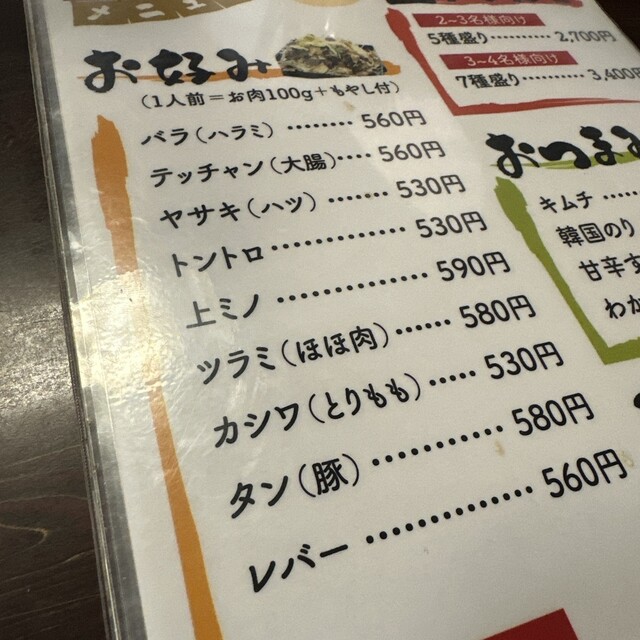 メニュ
2~3名様向け
5種盛り 2,700円
3~4名様向け
7種盛り 3,400円
お好み
(1人前=お肉100g+もやし付)
バラ(ハラミ) 560円
テッチャン(大腸) 560円
ヤサキ(ハツ) 530円
トントロ 530円
上ミノ 590円
ツラミ(ほほ肉) 580円
カシワ(とりもも) 530円
タン(豚) 580円
レバー 560円
おつまみ
キムチ
韓国のり
甘辛す
わか